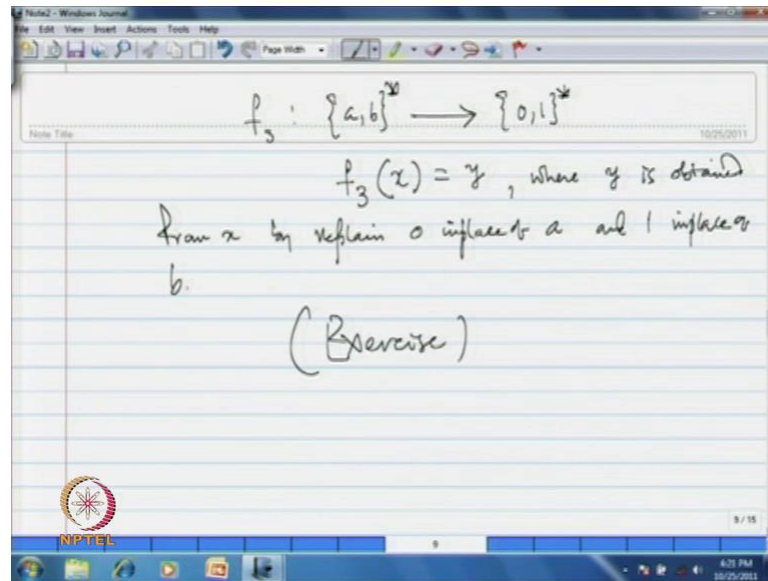 Note2 - Windows Journal
File Edit View Insert Actions Tools Help
Page Width
f₃ : {a,b}* ⟶ {0,1}*
Note Title
10/25/2011
f₃(x) = y , where y is obtained
from x by replain 0 inplace of a and 1 inplace of
b.
(Exercise)
NPTEL
9 / 15
9
4:21 PM
10/25/2011